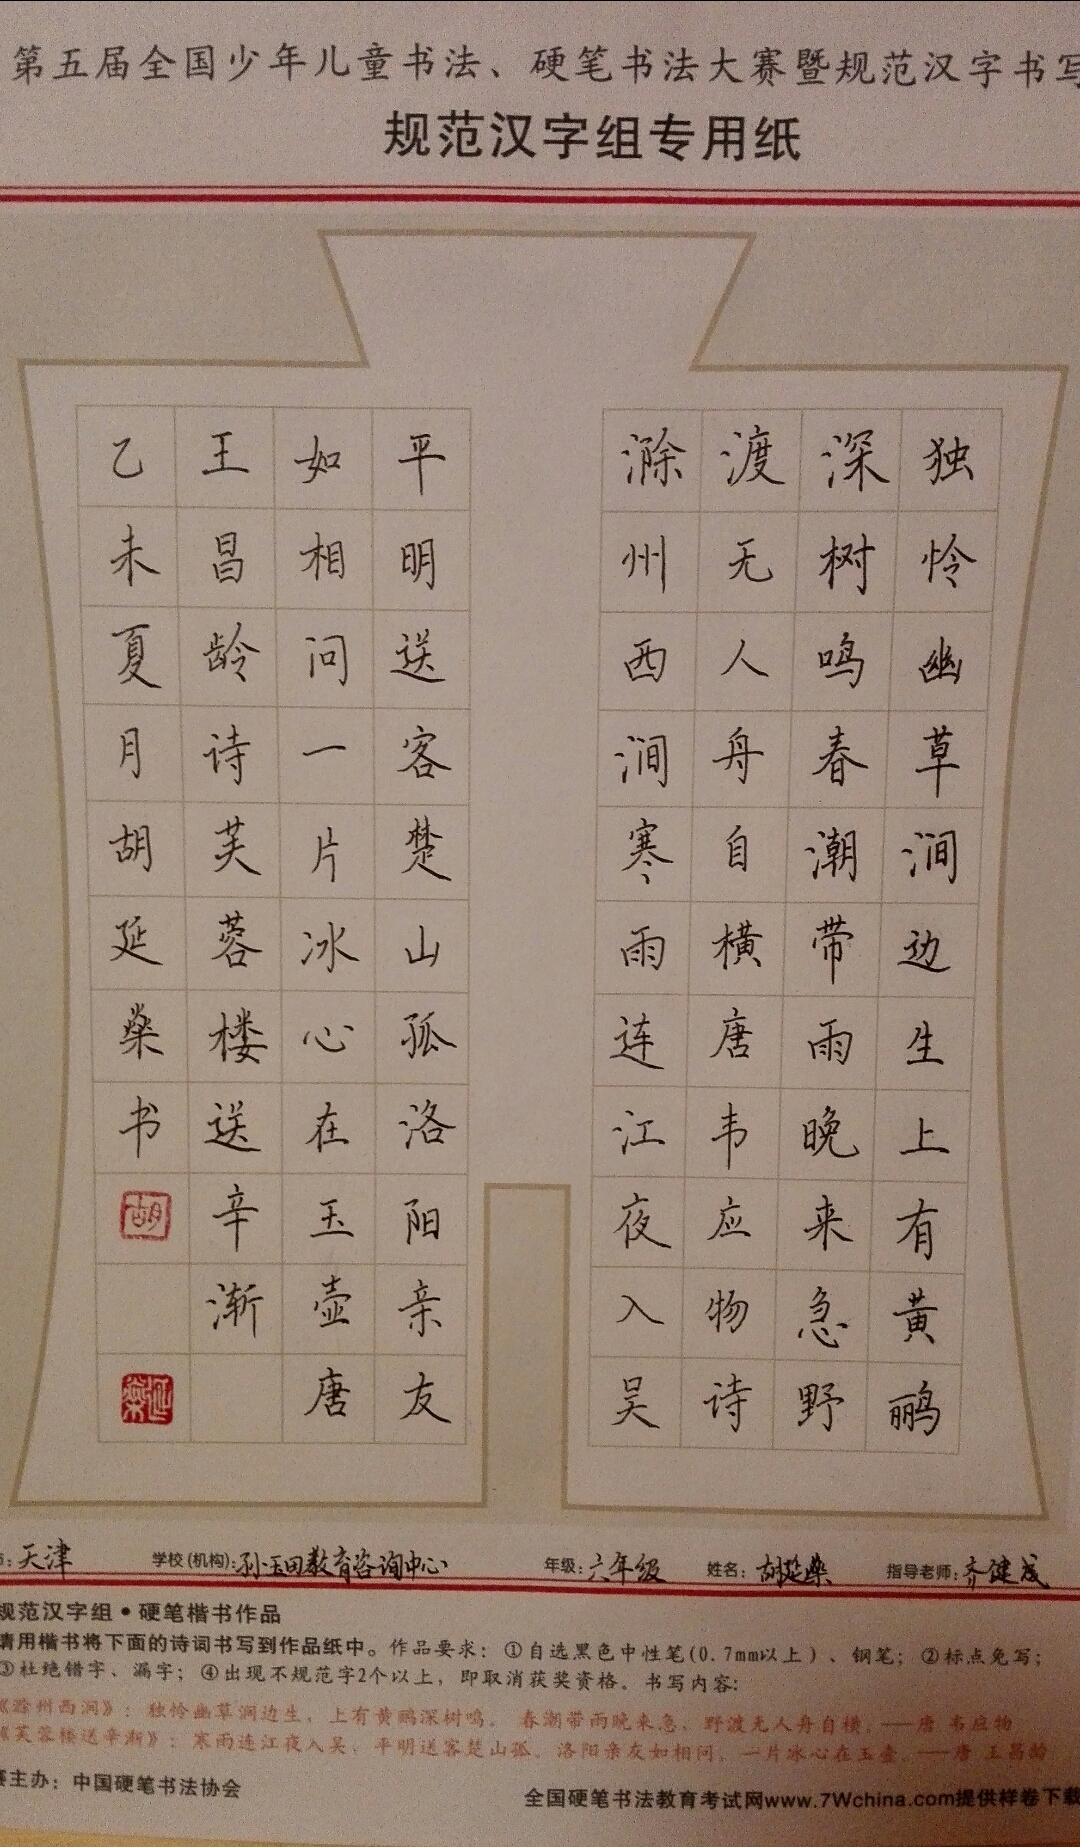 第五届全国少年儿童书法、硬笔书法大赛暨规范汉字书写
规范汉字组专用纸
独怜幽草涧边生上有黄鹂
深树鸣春潮带雨晚来急野
渡无人舟自横唐韦应物诗
滁州西涧寒雨连江夜入吴
平明送客楚山孤洛阳亲友
如相问一片冰心在玉壶唐
王昌龄诗芙蓉楼送辛渐
乙未夏月胡延燊书
胡
延燊
天津 学校(机构):孙玉田教育咨询中心 年级:六年级 姓名:胡延燊 指导老师:齐健成
规范汉字组•硬笔楷书作品
请用楷书将下面的诗词书写到作品纸中。作品要求：①自选黑色中性笔(0.7mm以上）、钢笔；②标点免写；
③杜绝错字、漏字；④出现不规范字2个以上，即取消获奖资格。书写内容：
《滁州西涧》：独怜幽草涧边生，上有黄鹂深树鸣。春潮带雨晚来急，野渡无人舟自横。——唐 韦应物
《芙蓉楼送辛渐》：寒雨连江夜入吴，平明送客楚山孤。洛阳亲友如相问，一片冰心在玉壶。——唐 王昌龄
赛主办：中国硬笔书法协会
全国硬笔书法教育考试网www.7Wchina.com提供样卷下载